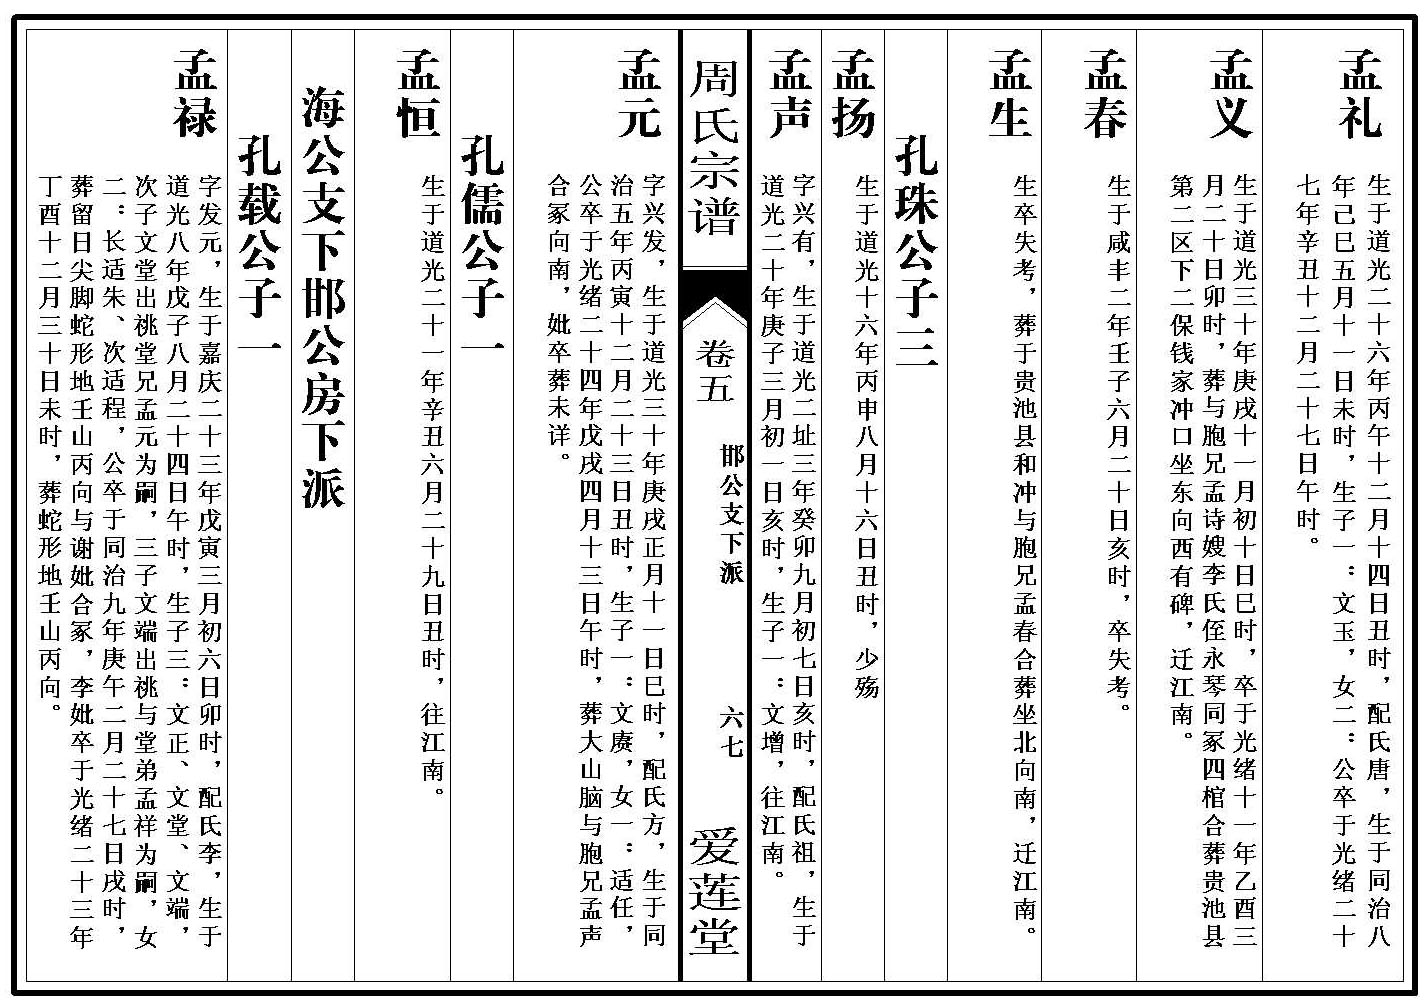 孟礼
生于道光二十六年丙午十二月十四日丑时，配氏唐，生于同治八
年己巳五月十一日未时，生子一：文玉，女二：公卒于光绪二十
七年辛丑十二月二十七日午时。
孟义
生于道光三十年庚戌十一月初十日巳时，卒于光绪十一年乙酉三
月二十日卯时，葬与胞兄孟诗嫂李氏侄永琴同冢四棺合葬贵池县
第二区下二保钱家冲口坐东向西有碑，迁江南。
孟春
生于咸丰二年壬子六月二十日亥时，卒失考。
孟生
生卒失考，葬于贵池县和冲与胞兄孟春合葬坐北向南，迁江南。
孔珠公子三
孟扬
生于道光十六年丙申八月十六日丑时，少殇
孟声
字兴有，生于道光二址三年癸卯九月初七日亥时，配氏祖，生于
道光二十年庚子三月初一日亥时，生子一：文增，往江南。
周氏宗谱
卷五
邯公支下派
六七
爱莲堂
孟元
字兴发，生于道光三十年庚戌正月十一日巳时，配氏方，生于同
治五年丙寅十二月二十三日丑时，生子一：文赓，女一：适任，
公卒于光绪二十四年戊戌四月十三日午时，葬大山脑与胞兄孟声
合冢向南，妣卒葬未详。
孔儒公子一
孟恒
生于道光二十一年辛丑六月二十九日丑时，往江南。
海公支下邯公房下派
孔载公子一
孟禄
字发元，生于嘉庆二十三年戊寅三月初六日卯时，配氏李，生于
道光八年戊子八月二十四日午时，生子三：文正、文堂、文端，
次子文堂出祧堂兄孟元为嗣，三子文端出祧与堂弟孟祥为嗣，女
二：长适朱、次适程，公卒于同治九年庚午二月二十七日戌时，
葬留日尖脚蛇形地壬山丙向与谢妣合冢，李妣卒于光绪二十三年
丁酉十二月三十日未时，葬蛇形地壬山丙向。